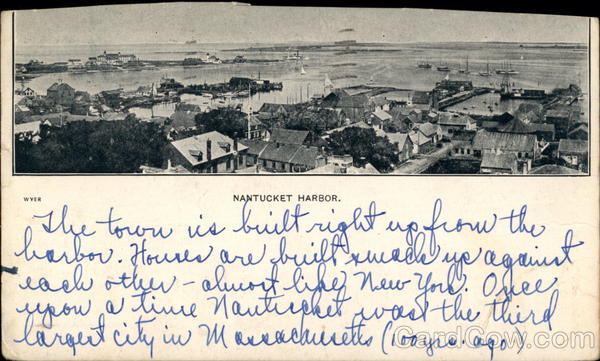 WYER
NANTUCKET HARBOR.
The town is built right up from the
harbor. Houses are built smack up against
each other - almost like New York. Once
upon a time Nantucket was the third
largest city in Massachusetts (100 yrs. ago)
CardCow.com